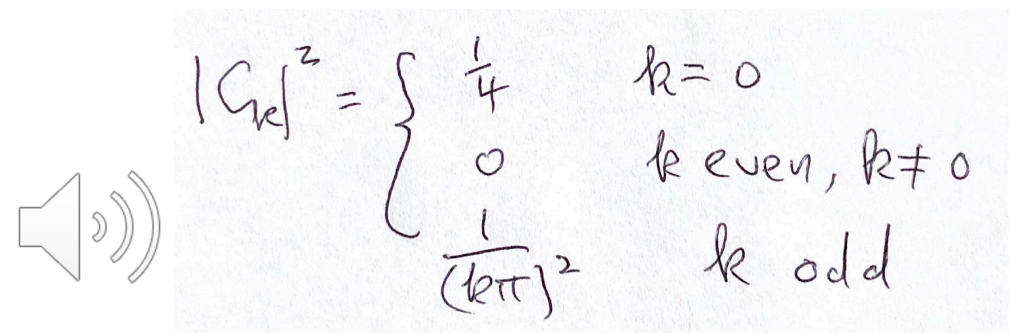 |C_k|² = { 1/4 k = 0
0 k even, k ≠ 0
1/(kπ)² k odd